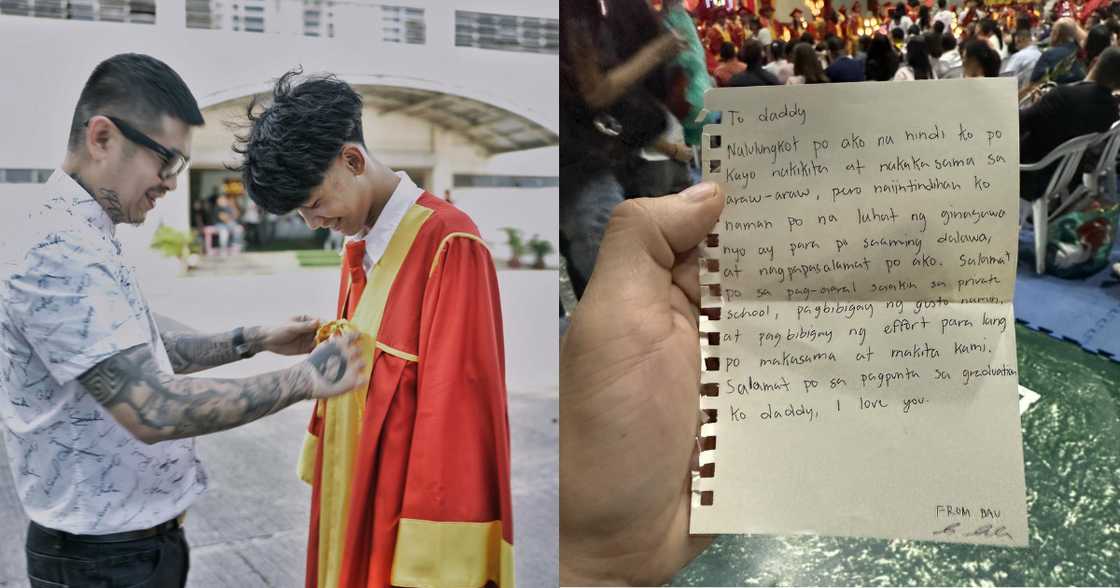 To daddy
Nalulungkot po ako na hindi ko po
kayo nakikita at nakakasama sa
araw-araw, pero naiintindihan ko
naman po na lahat ng ginagawa
nyo ay para po saaming dalawa,
at nagpapasalamat po ako. Salamat
po sa pag-aaral saakin sa private
school, pagbibigay ng gusto namin,
at pagbibigay ng effort para lang
po makasama at makita kami.
Salamat po sa pagpunta sa graduation
ko daddy, I love you.
FROM DAU